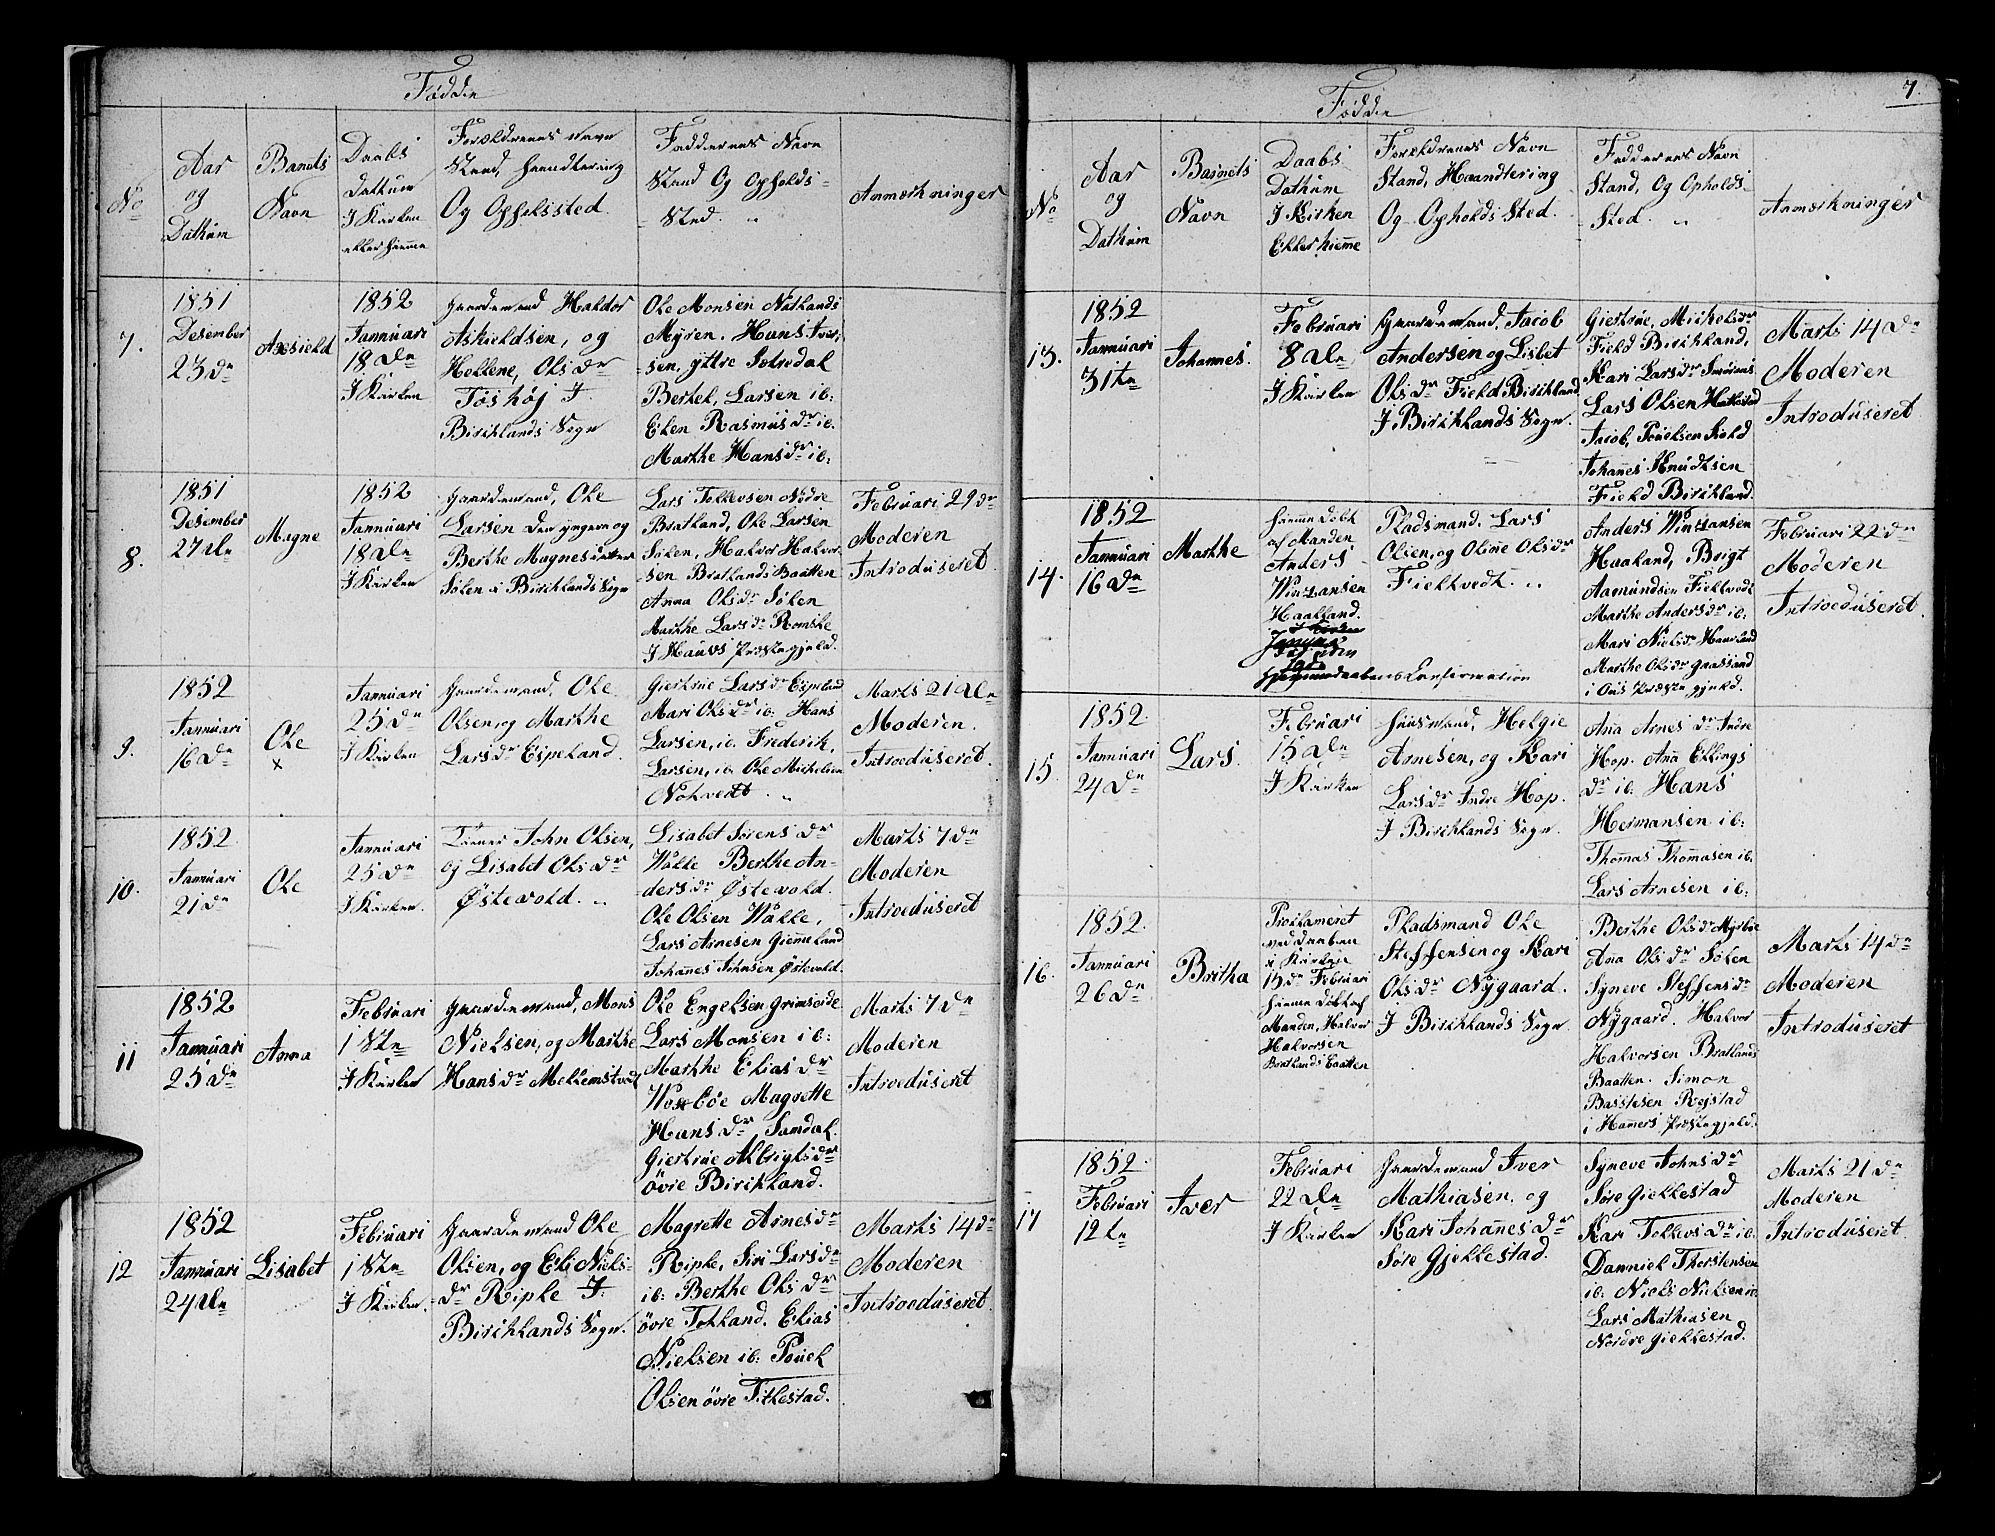 Fødde
No
Aar
og
Dathum
Barnets
Navn
Daabs
Dathum
I Kirken
eller hiemme
Forældrenes Navn
Stand, Haandtering
Og Opholssted.
Faddernes Navn
Stand Og Opholds-
-Sted.
Anmærkninger
7.
1851
Desember
23de
1852
Jannuari
18de
I Kirken
Gaardemand Haldor
Askieldsen, og
Hellene, Olsdr
Tøshøj I
Birchlands Sogn
Ole Monsen Natlands
Myren. Hans Iver-
sen, yttre Sætredal
Berhel, Larsen ib:
Elen Rasmusdr ib.
Marthe Hansdr ib:
8.
1851
Desember
27de
Magne
1852
Jannuari
18de
I Kirken
Gaardemand, Ole
Larsen den yngere og
Berthe Magnesdatter
Sølen i Birchlands Sogn
Lars Tollevsen Nedre
Bratland, Ole Larsen
Sølen, Halvor Halvor-
sen Bratlands Baatten
Anna Olsdr Sølen
Marthe Larsdr Romslo
I Hauvs Præstegjeld.
Februari 29de
Moderen
Introduseret.
9.
1852
Jannuari
16de
Ole
x
Jannuari
25de
I Kirken
Gaardemand, Ole
Olsen, og Marthe
Larsdr Espeland.
Giertrue Larsdr Espeland
Mari Olsdr ib. Hans
Larsen, ib. Frederik,
Larsen, ib. Ole Michelsen
Marts 21de
Moderen.
Introduseret.
10.
1852.
Jannuari
21de
Ole
Jannuari
25de
I Kirken.
John Olsen,
og Lisabet Olsdr
Østevold.
Lisabet Sørensdr
Walle Berthe An-
dersdr Østevold.
Ole Olsen Walle,
Lars Arnesen Giemeland
Johannes Johnsen Østevold.
Marts 7de
Moderen
Introduseret
11
1852
Jannuari
25de
Anna
Februari
1ste
I Kirken
Gaardemand, Mons
Nielsen, og Marthe
Hansdr Mellemstvedt
Ole Engelsen, Grimseide
Lars Monsen ib:
Marthe Eliasdr
Magrette
Hansdr Samdal.
Giertrue Albrigtsdr
øvre Birchland.
Marts 7de
Moderen
Introduseret
12
1852
Jannuari
24de
Lisabet
Februari
1ste
I Kirken.
Gaardemand Ole
Olsen, og Eli Niels-
dr Riple I
Birchlands Sogn.
Magrette Arnesdr
Riple, Siri Larsdr
ib: Berthe Olsdr
øvre Totland. Elias
Nielsen ib: Pouel
Olsen øvre Titlestad.
Marts 14de
Moderen
Introduseret
7.
Fødde
No
Aar
og
Dathum
Barnets
Navn
Daabs
Dathum
I Kirken
Eller hieme
Forældrenes Navn
Stand, Haandtering
Og Opholds Sted.
Faddernes Navn
Stand, Og Opholds-
Sted.
Anmærkninger
13.
1852
Jannuari
31te
Johannes.
Februari
8de
I Kirken
Gaardemand, Jacob
Andersen og Lisbet
Olsdr Field Birchland
I Birchlands Sogn.
Giertrue, Michelsdr
Field Birchland,
Kari Larsdr Smøraas
Lars Olsen
Jacob, Pouelsen
Johannes Knudtsen
Field Birchland.
Marts 14de
Moderen
Introduseret.
14.
1852
Jannuari
16de
Marthe
hieme døbt
af Manden
Anders
Winzansen
Haakland.
Hjemmedaabens Confirmation
Pladsmand. Lars
Olsen, og Oline Olsdr
Fieltvedt.
Anders Winzansen
Haaland, Brigt
Aamundsen Fieltvedt
Marthe Andersdr ib:
Mari Nielsdr
Marthe Olsdr
i Ous Præstegjeld.
Februari 22de
Moderen
Introduseret.
15.
1852.
Jannuari
24de
Lars.
Februari
15de
I Kirken
Huusmand, Helgie
Arnesen, og Kari
Larsdr Indre Hop.
I Birchlands Sogn.
Ana Arnesdr Indre
Hop. Ana Ellings
dr ib. Hans
Hermansen ib:
Thomas Thomasen ib.
Lars Arnesen ib:
16.
1852.
Jannuari
26de
Britha
Proklameret
ved daaben
i Kirken
15de Februari
hieme døbt af
Manden, Halvor
Halvorsen
Bratlands Baatten
Pladsmand Ole
Steffensen og Kari
Olsdr Nygaard.
I Birchlands Sogn.
Berthe Olsdr Myrbøe
Ana Olsdr Sølen
Syneve Steffensdr
Nygaard. Halvor
Halvorsen Bratlands
Baatten. Simon
Bastesen Rejstad
i Hamers Præstegjeld.
Marts 14de
Moderen
Introduseret
17
1852.
Februari
12te
Iver
Februari
22de
I Kirken
Gaardemand Iver
Mathiasen. og
Kari Johannesdr
Søre Gjellestad.
Syneve Johnsdr
Søre Giellestad
Kari Tollevsdr ib.
Danniel Thorstensen
ib. Niels Nielsen ib.
Lars Mathiasen
Nordre Giellestad.
Marts 21de
Moderen
Introduseret.